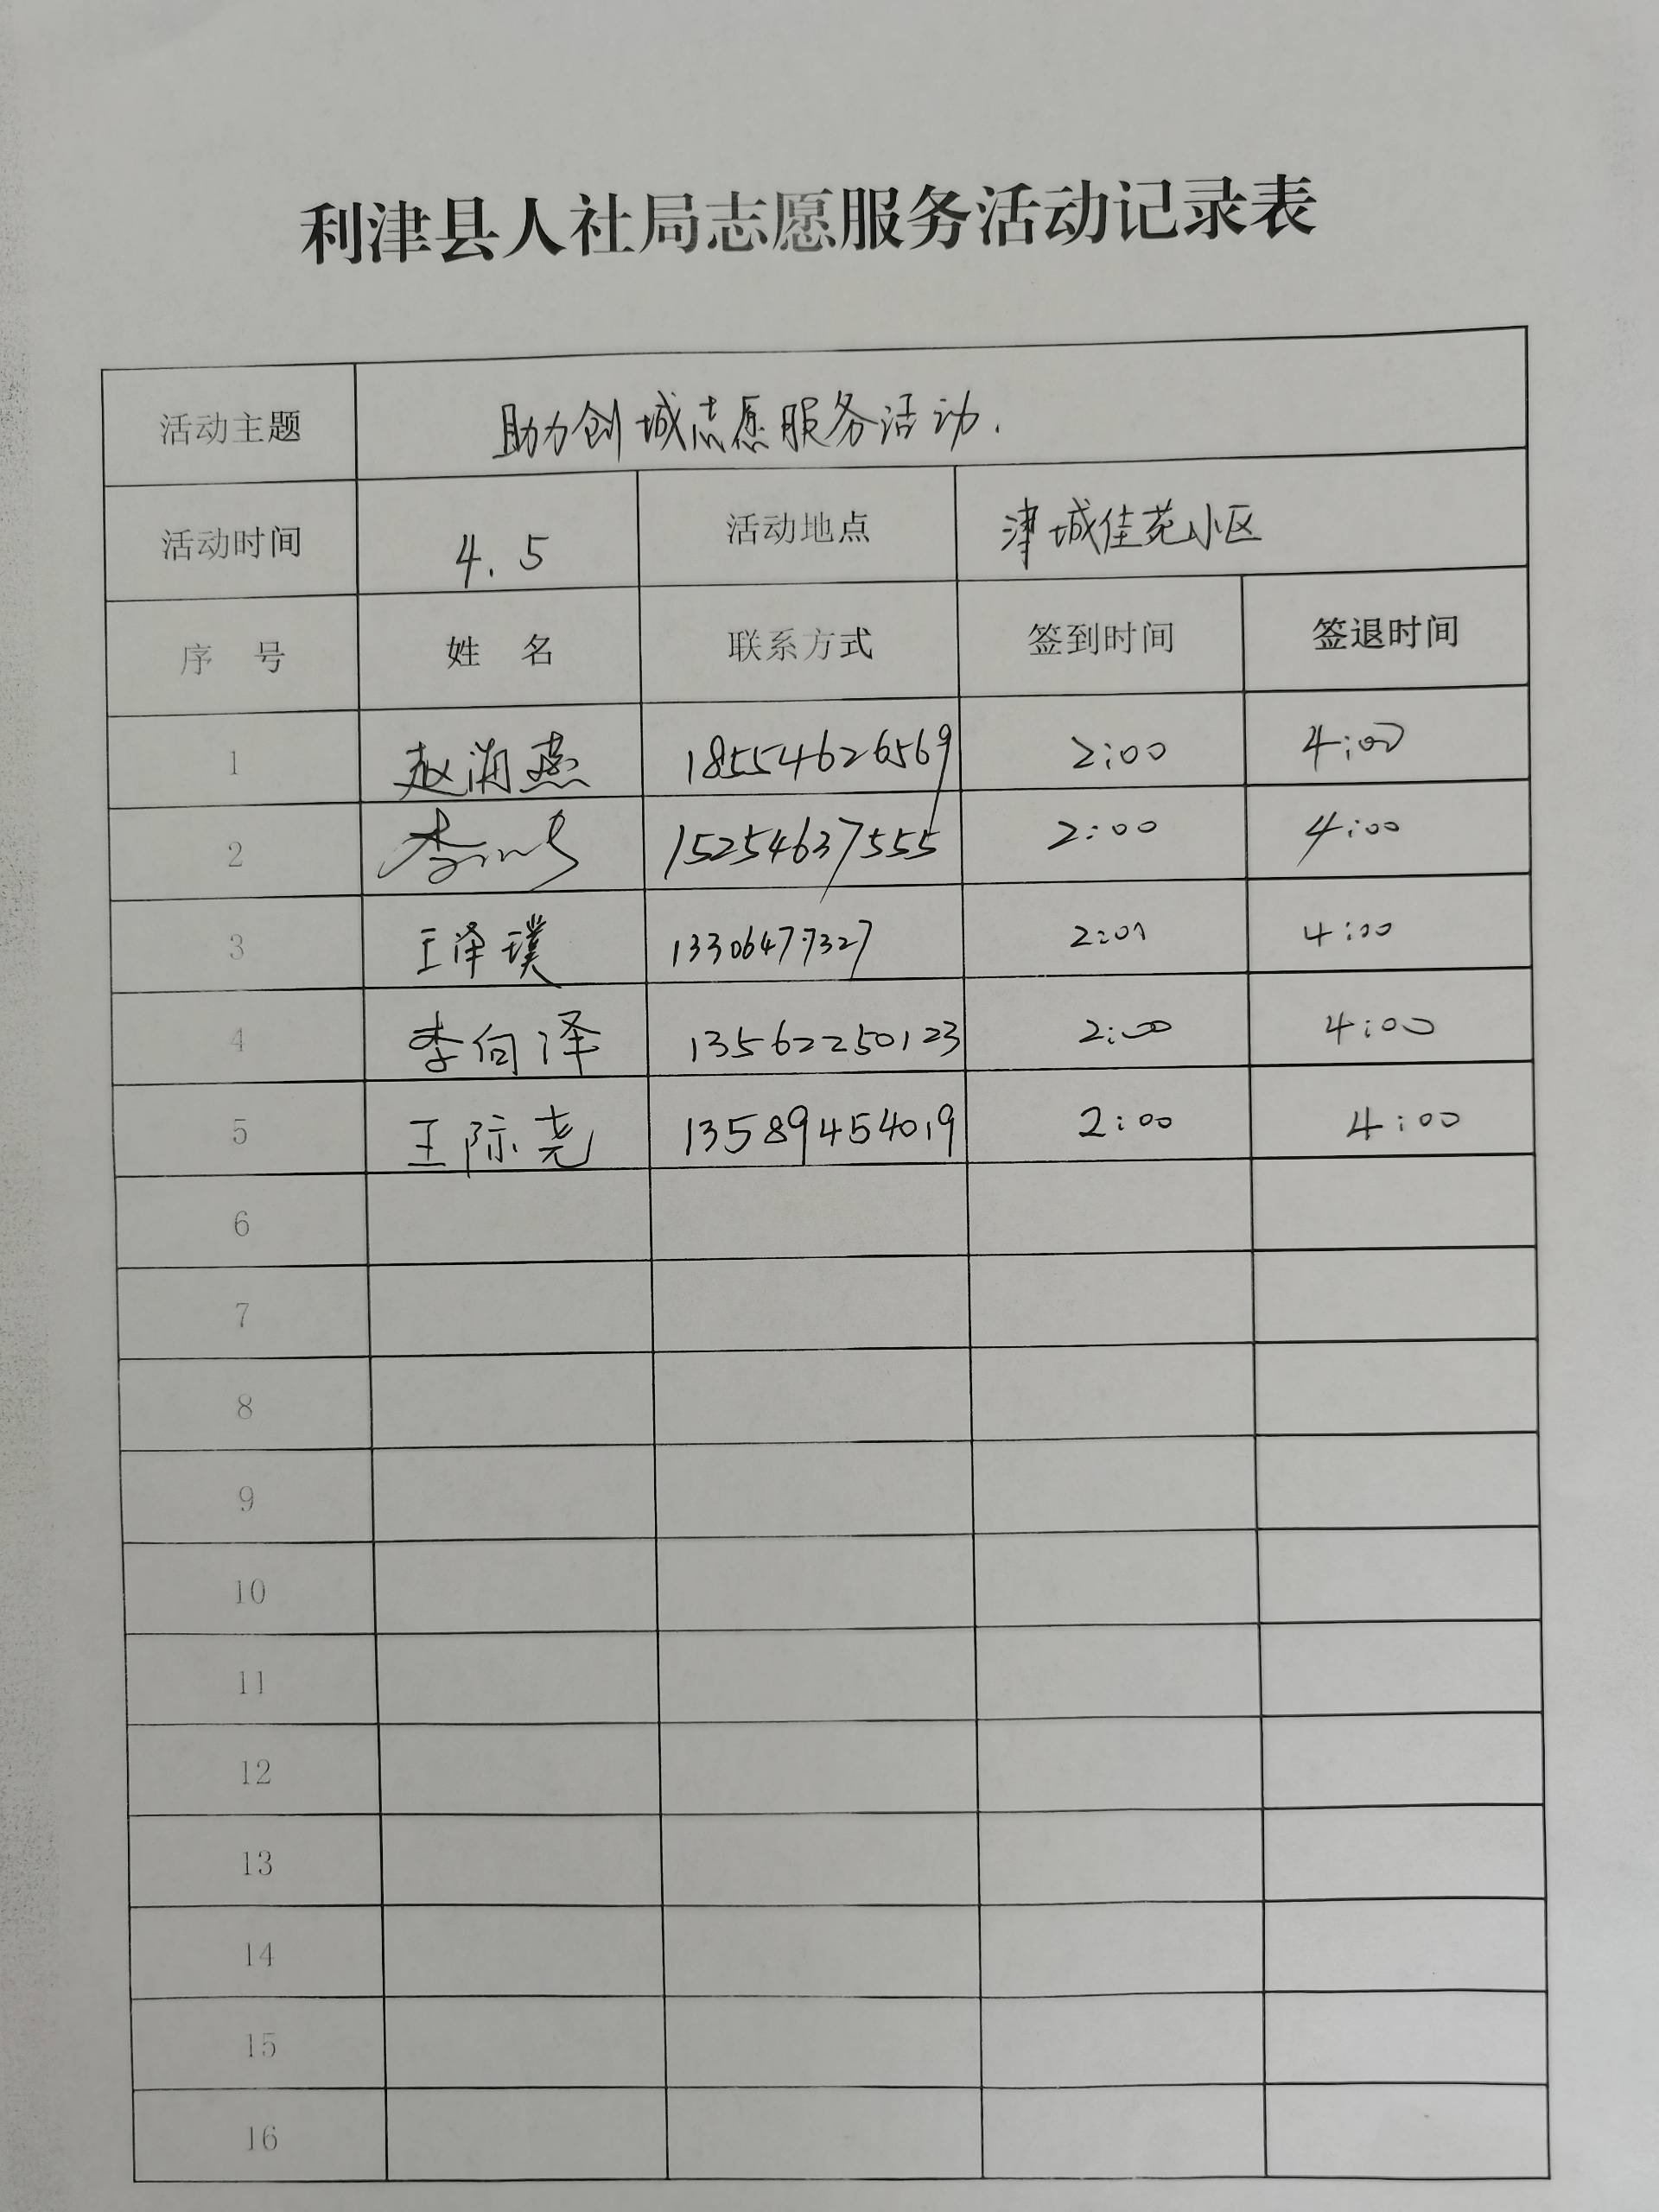 利津县人社局志愿服务活动记录表
活动主题 助力创城志愿服务活动.
活动时间 4.5 活动地点 津城佳苑小区
序 号 姓 名 联系方式 签到时间 签退时间
1 赵海燕 18554626569 2:00 4:00
2 李 15254637555 2:00 4:00
3 王泽璞 13306477327 2:00 4:00
4 李向泽 13562250123 2:00 4:00
5 王际尧 13589454019 2:00 4:00
6
7
8
9
10
11
12
13
14
15
16